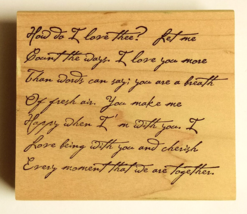 How do I love thee? Let me
Count the ways. I love you more
Than words can say; you are a breath
Of fresh air. You make me
Happy when I'm with you. I
Love being with you and cherish
Every moment that we are together.